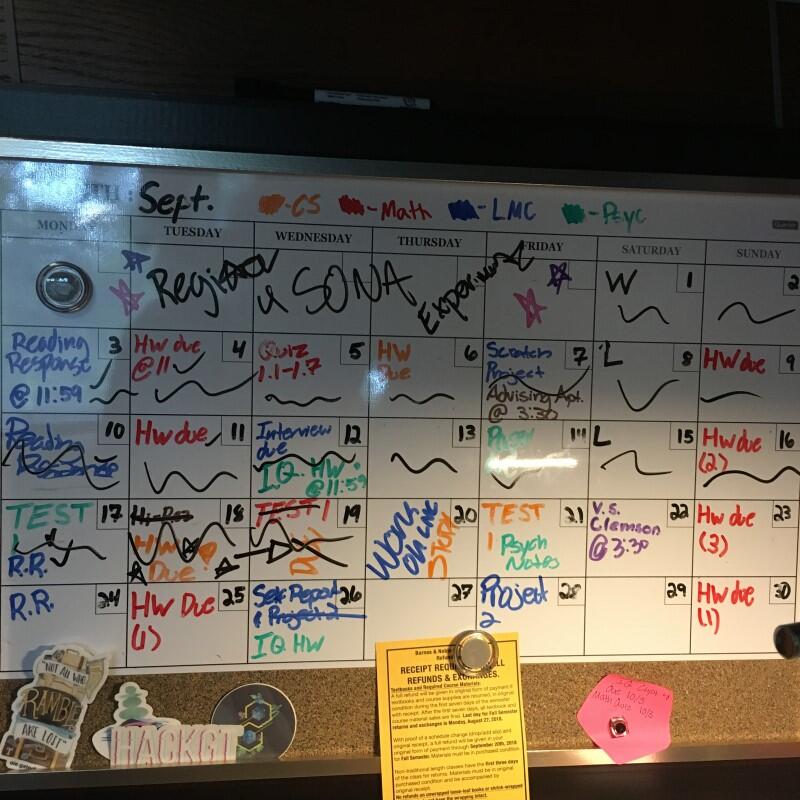 MONTH: Sept. -CS -Math -LMC -Psyc
MONDAY TUESDAY WEDNESDAY THURSDAY FRIDAY SATURDAY SUNDAY
Register 4 SONA Experiment
W 1
2
Reading Response @ 11:59 3
HW due @ 11 4
Quiz 1.1-1.7 5
HW Due 6
Scratch Project Advising Apt. @ 3:30 7
L 8
HW due 9
Reading Response 10
HW due 11
Interview due I.Q. HW @ 11:59 12
13
14
L 15
HW due (2) 16
TEST 1 R.R. 17
HW Due! 18
TEST 1 19
Work on LMC STUDY 20
TEST 1 Psych Notes 21
V.S. Clemson @ 3:30 22
HW due (3) 23
R.R. 24
HW Due (1) 25
Self Report & Project 2 IQ HW 26
27
Project 2 28
29
HW due (1) 30
"NOT ALL WHO
RAMBLE
ARE LOST"
HACKGT
Barnes & Noble
RECEIPT REQUIRED FOR ALL
REFUNDS & EXCHANGES.
Textbooks and Required Course Materials:
A full refund will be given in original form of payment if
textbooks and course supplies are returned, in original
condition during the first seven days of the semester
with receipt. After the first seven days, all textbook and
course material sales are final. Last day for Fall Semester
returns and exchanges is Monday, August 27, 2018.
With proof of a schedule change (drop/add slip) and
original receipt, a full refund will be given in your
original form of payment through September 20th, 2018
for Fall Semester. Materials must be in purchased condition.
Non-traditional length classes have the first three days
of the class for returns. Materials must be in original
purchased condition and be accompanied by
original receipt.
No refunds on unwrapped loose-leaf books or shrink-wrapped
Due 10/3
Math Quiz 10/3